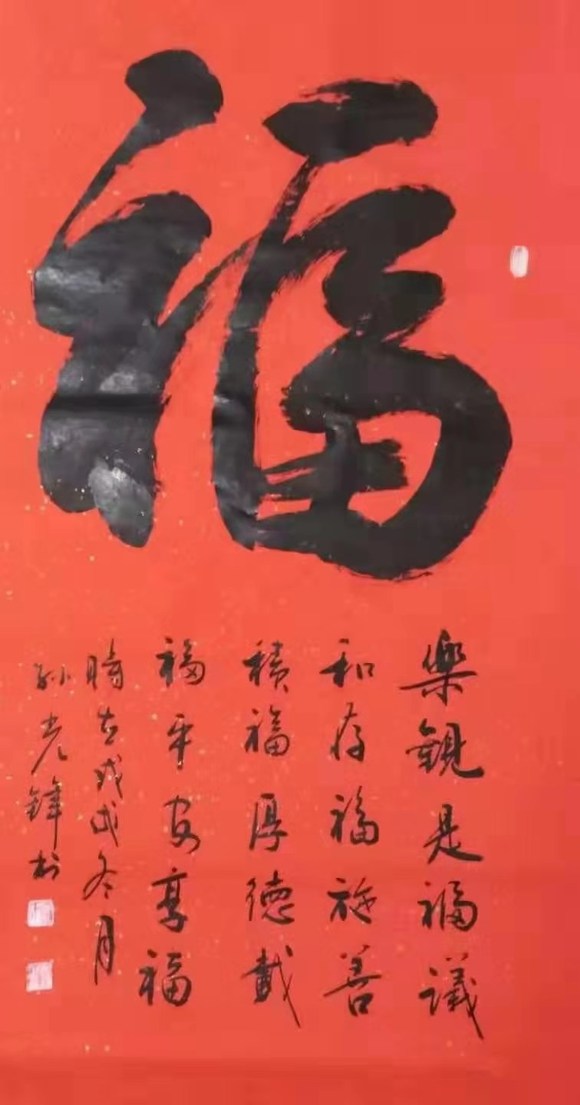 福
樂觀是福議
和存福施善
積福厚德戴
福平安享福
時在戊戌冬月
孙光鋒书